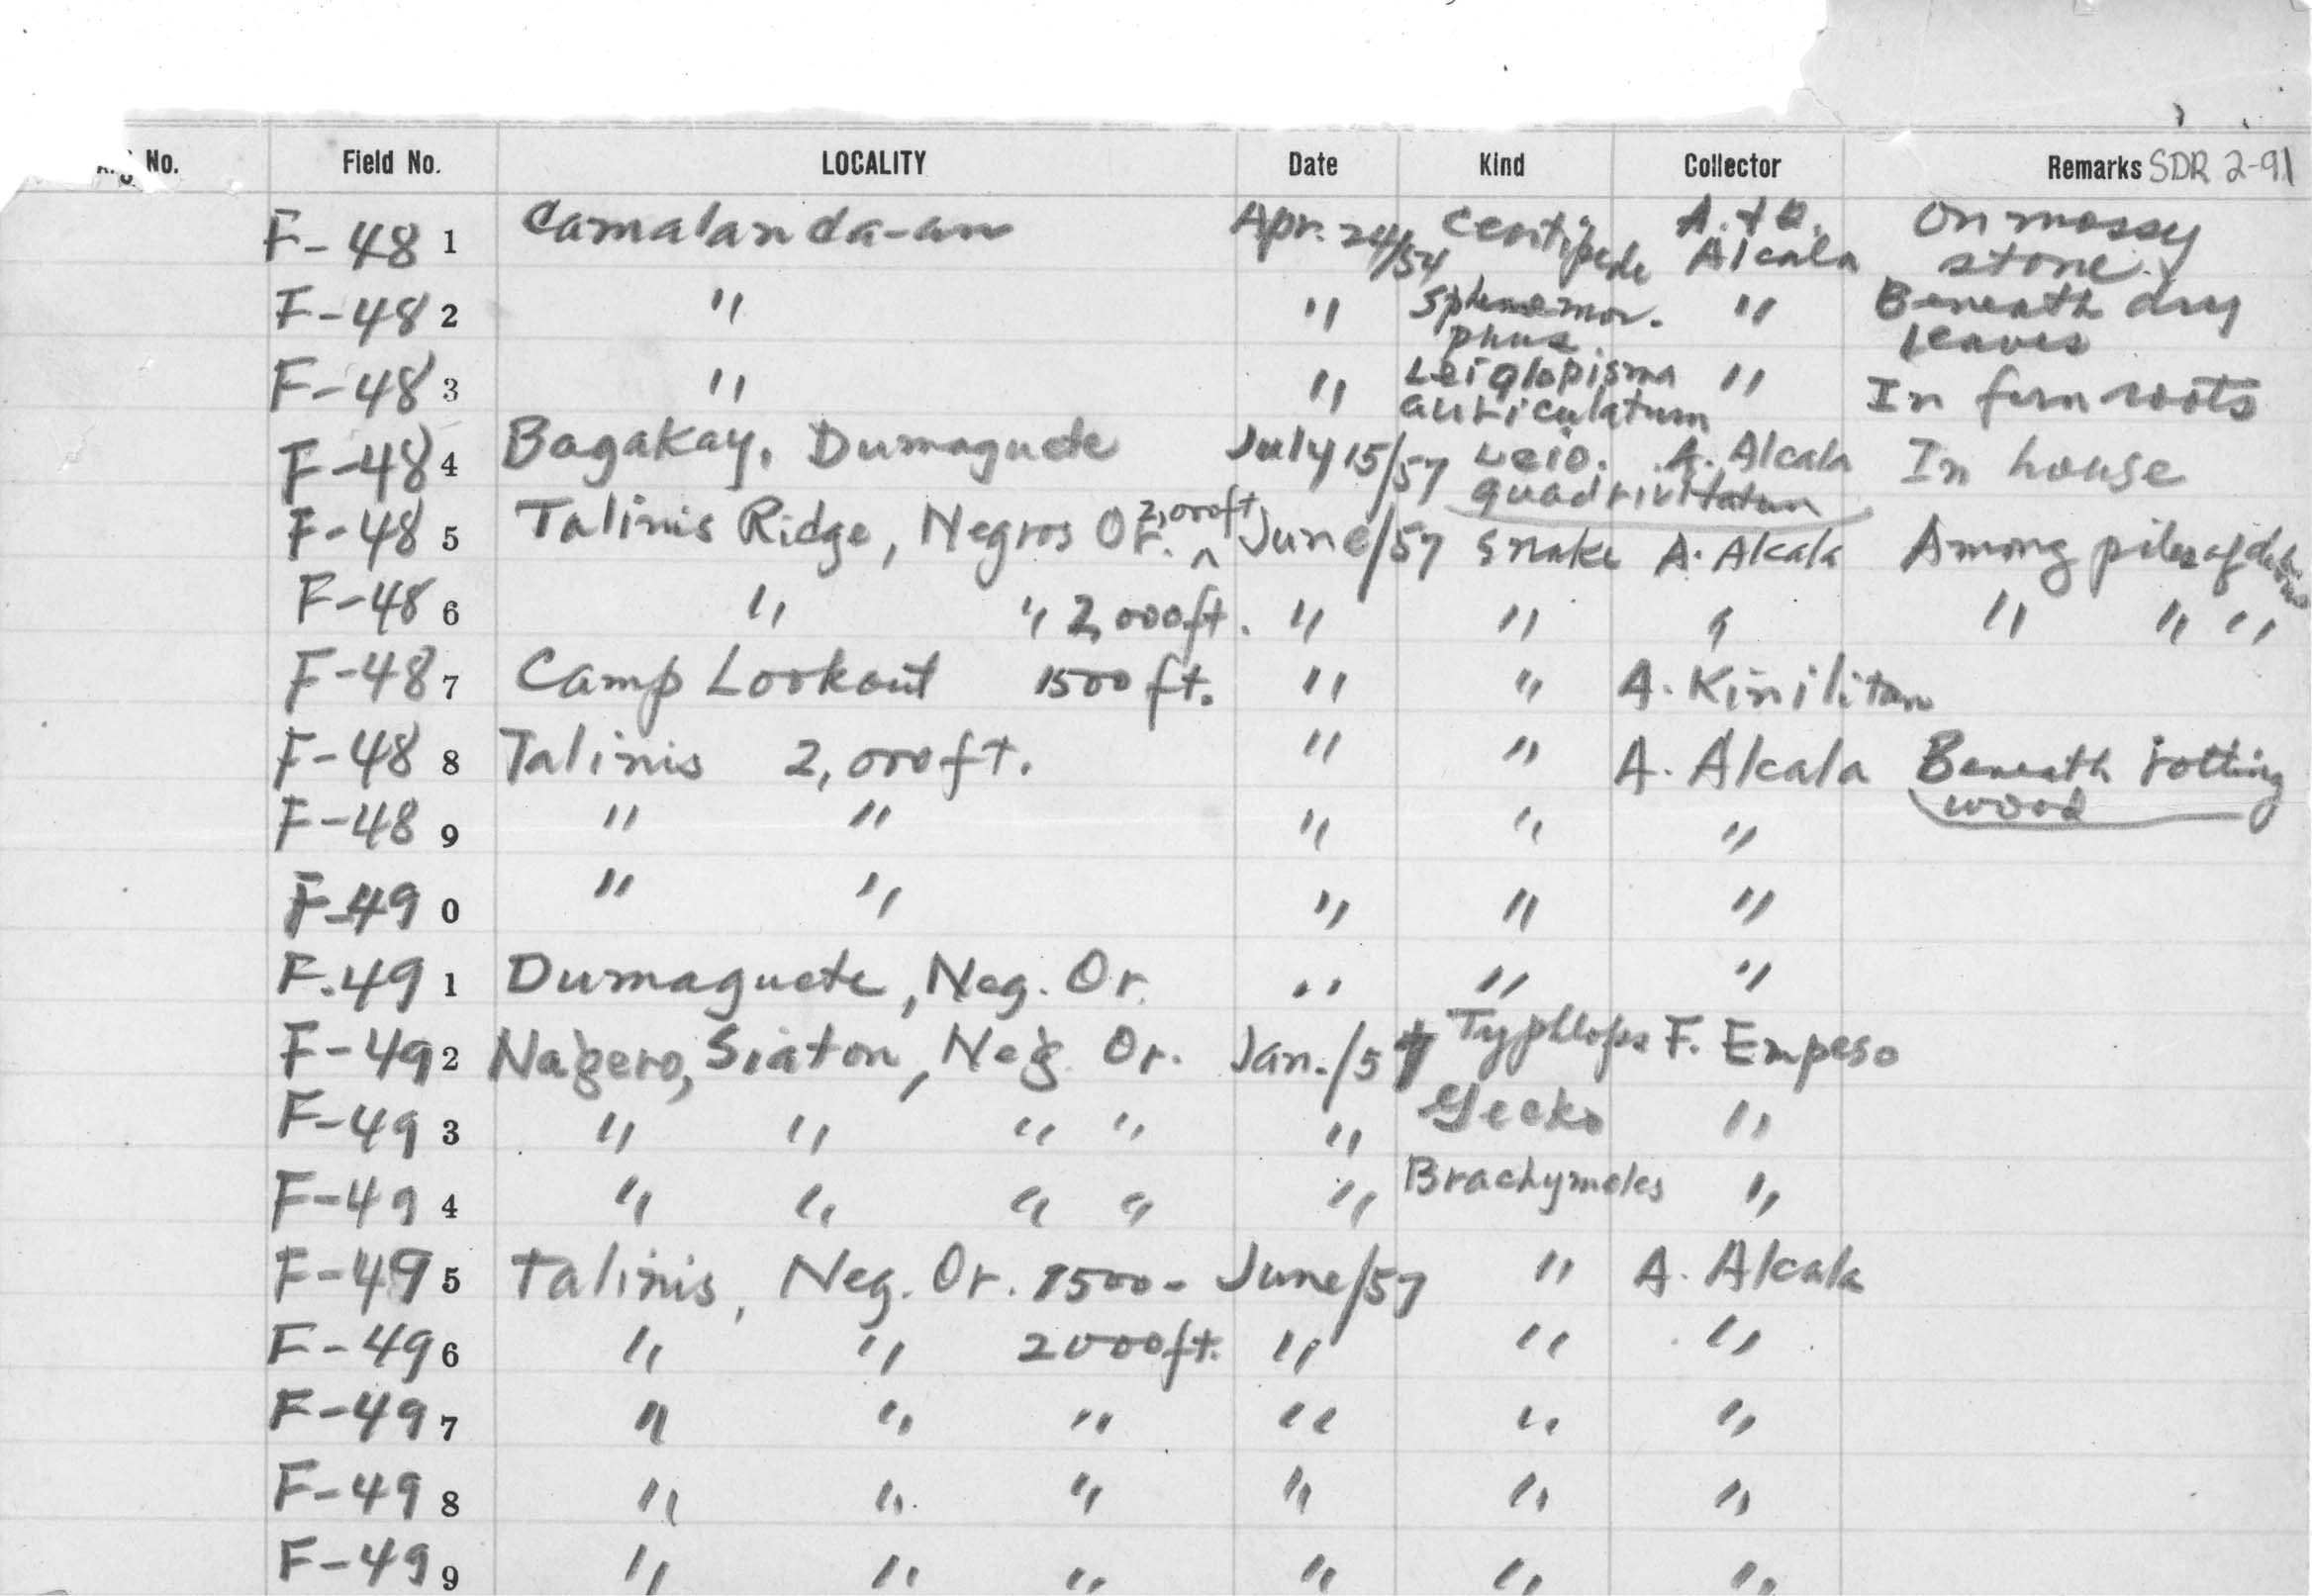 No. Field No. LOCALITY Date Kind Collector Remarks SDR 2-91
F-481 Camalanda-an Apr. 24/54 Centipede A. + A. Alcala On mossy stone.
F-482 " " Sphenomorphus " Beneath dry leaves
F-483 " " Leiolopisma auriculatum " In fern roots
F-484 Bagakay, Dumaguete July 15/57 Leio. quadrivittatum A. Alcala In house
F-485 Talinis Ridge, Negros Or. 2,000ft June/57 Snake A. Alcala Among piles of debris
F-486 " " 2,000ft. " " " " " "
F-487 Camp Lookout 1500 ft. " " A. Kinilitan
F-488 Talinis 2,000ft. " " A. Alcala Beneath rotting wood
F-489 " " " " "
F-490 " " " " "
F.491 Dumaguete, Neg. Or. " " "
F-492 Nagero, Siaton, Neg. Or. Jan./57 Typhlops F. Empeso
F-493 " " " " " Gecko "
F-494 " " " " " Brachymeles "
F-495 Talinis, Neg. Or. 1500- June/57 " A. Alcala
F-496 " " 2000ft. " " "
F-497 " " " " " "
F-498 " " " " " "
F-499 " " " " " "